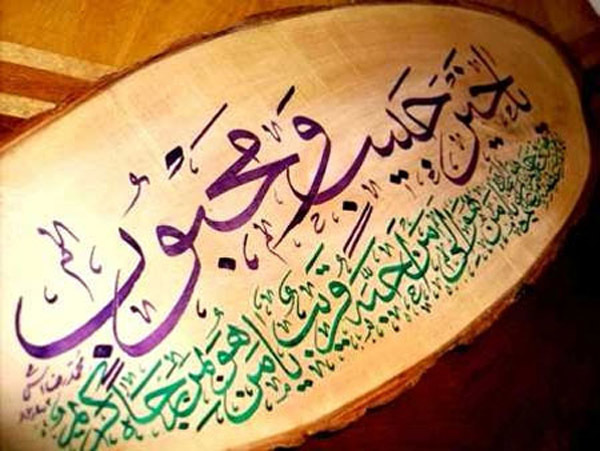 يا خير حبيب و محبوب
يا من هو الى من احبّه قريب يا من هو بمن رجاه كريم
محمدرضا